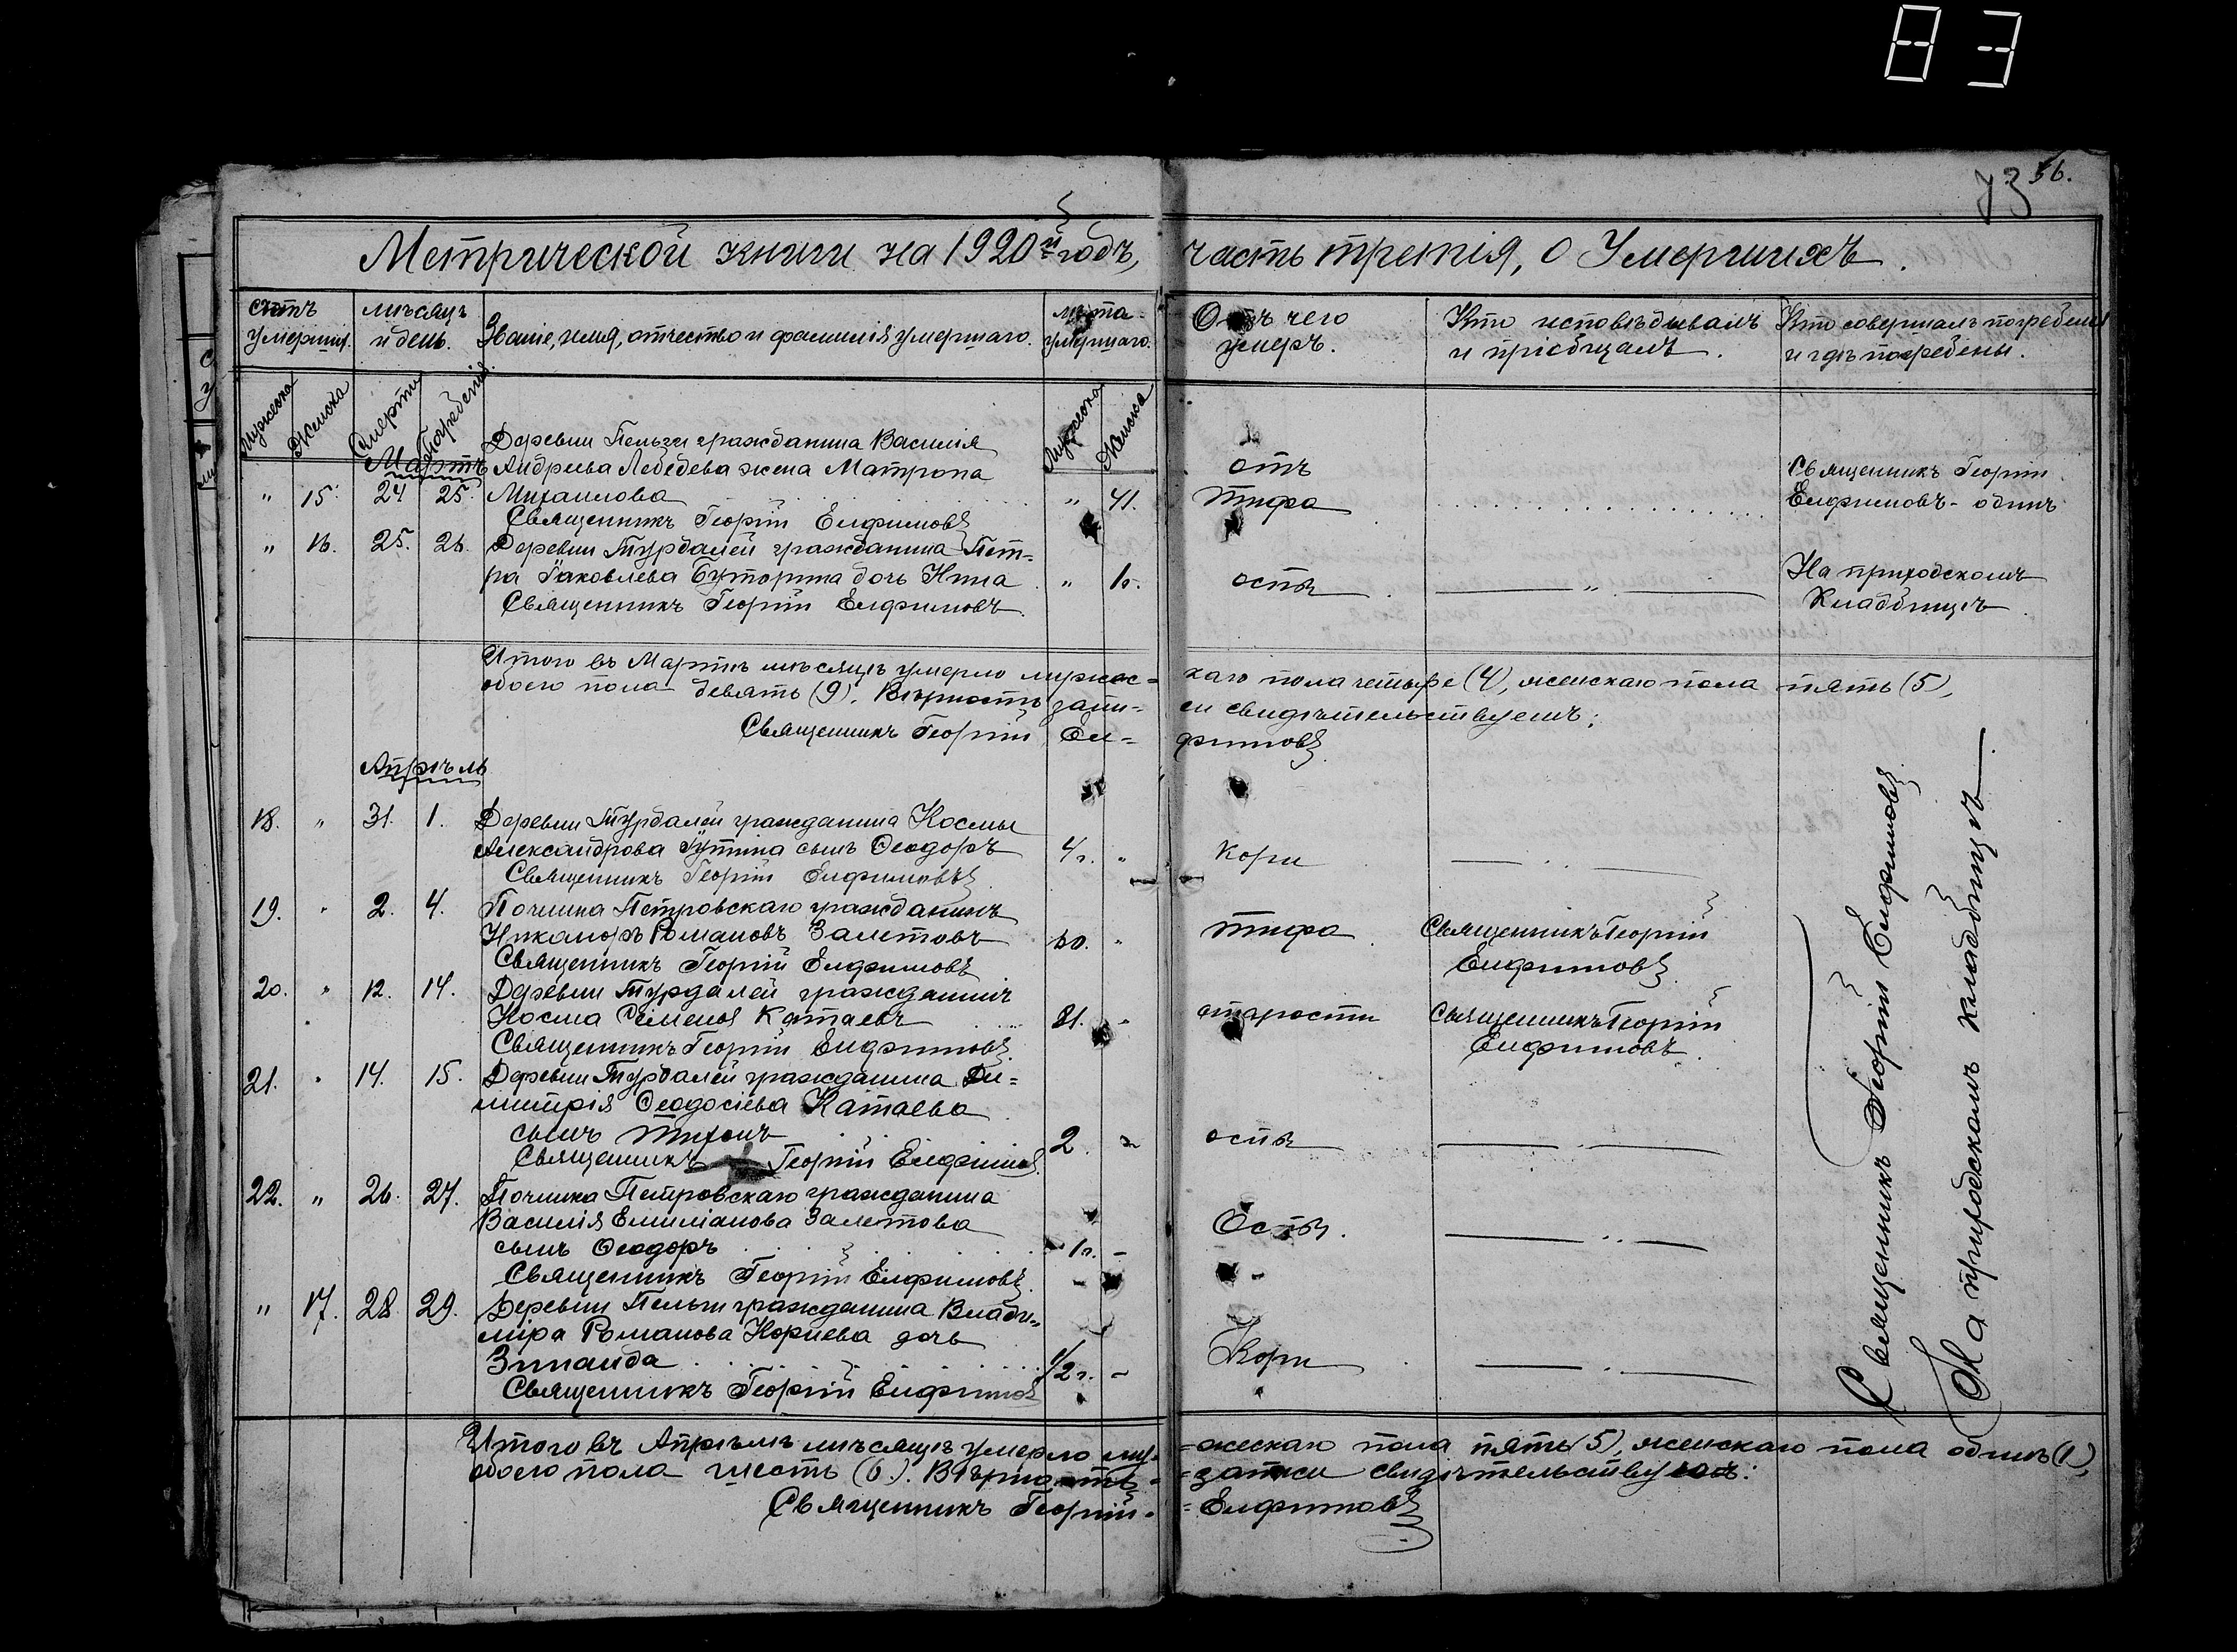 83
73 56.
Метрической книги на 1920й годъ, часть третія, о Умершихъ.
Счетъ умерших.
мѣсяцъ и день.
Званіе, имя, отчество и фамилія умершаго.
лѣта умершаго.
Отъ чего умеръ.
Кто исповѣдывалъ и пріобщалъ.
Кто совершалъ погребеніе и гдѣ погребены.
Мужеска Женска Смерти Погребенія Мужеска Женска
Мартъ
Деревни Пельги гражданина Василія
Андреева Лебедева жена Матрона отъ Священникъ Георгій
" 15. 24 25. Михаилова " 41. Тифа Елфимовъ - одинъ
Священникъ Георгій Елфимовъ
" 16. 25. 26. Деревни Турдалей гражданина Пет-
ра Іаковлева Буторина дочь Нина " оспы " На приходскомъ
Священникъ Георгій Елфимовъ Кладбищѣ
Итого въ Мартѣ мѣсяцѣ умерло мужес= каго пола четыре (4), женскаго пола пять (5),
обоего пола девять (9). Вѣрность запи= си свидѣтельствуетъ:
Священникъ Георгій Ел= фимовъ
Апрѣль
18. " 31. 1. Деревни Турдалей гражданина Космы
Александрова Гутина сынъ Ѳеодоръ 4 г. " Кори
Священникъ Георгій Елфимовъ
19. " 2. 4. Починка Петровскаго гражданинъ
Никаноръ Романовъ Залетовъ 60. " Тифа Священникъ Георгій
Священникъ Георгій Елфимовъ Елфимовъ
20. " 12. 14. Деревни Турдалей гражданинъ
Косма Семенов Катаевъ 81. - старости Священникъ Георгій
Священникъ Георгій Елфимовъ Елфимовъ
21. " 14. 15. Деревни Турдалей гражданина Ди=
митрія Ѳеодосіева Катаева
сынъ Тихонъ 2 " оспы
Священникъ Георгій Елфимов
22. " 26. 27. Починка Петровскаго гражданина
Василія Емиліанова Залетова
сынъ Ѳеодоръ 1 г. - Оспы.
Священникъ Георгій Елфимовъ
" 17. 28. 29. Деревни Пельги гражданина Влади-
міра Романова Корнева дочь
Зинаида 1/2 г. - Кори
Священникъ Георгій Елфимов
Священникъ Георгій Елфимовъ
На приходскомъ кладбищѣ
Итого въ Апрѣлѣ мѣсяцѣ умерло му- =жескаго пола пять (5), женскаго пола одинъ (1),
обоего пола шесть (6). Вѣрность =записи свидѣтельствую:
Священникъ Георгій = Елфимовъ